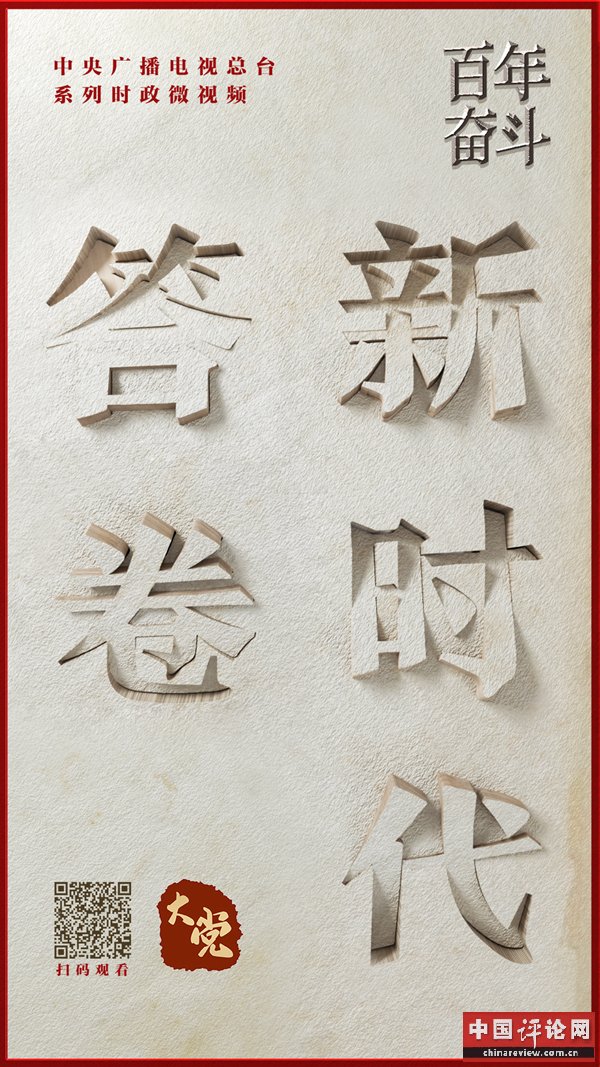 中央广播电视总台
系列时政微视频
百年
奋斗
新时代
答卷
扫码观看
大党
中国评论网
chinareview.com.cn